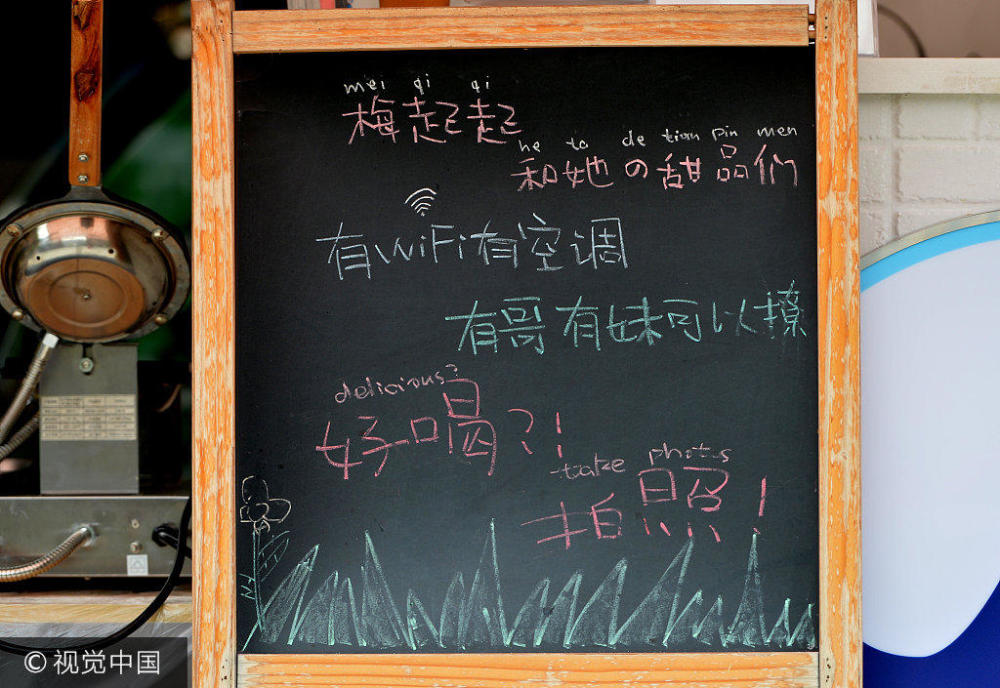 mei qi qi
梅起起
he ta de tian pin men
和她の甜品们
有WiFi有空调
有哥有妹可以撩
delicious?
好喝?!
take photos
拍照!
© 视觉中国